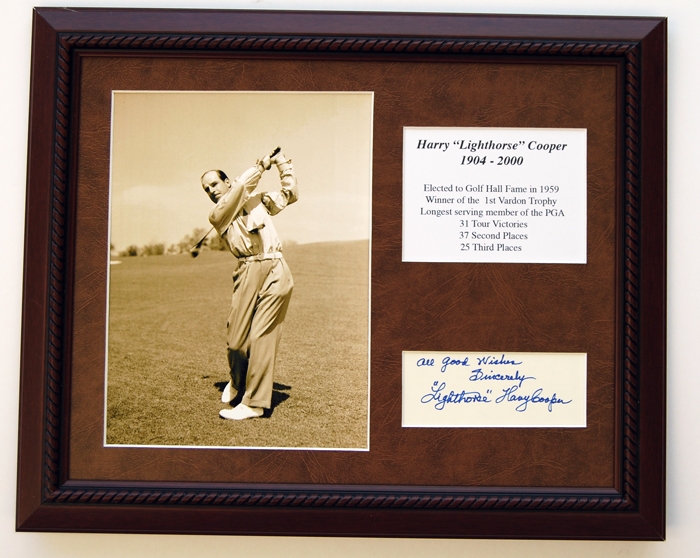 Harry “Lighthorse” Cooper
1904 - 2000
Elected to Golf Hall Fame in 1959
Winner of the 1st Vardon Trophy
Longest serving member of the PGA
31 Tour Victories
37 Second Places
25 Third Places
All Good Wishes
Sincerely
"Lighthorse" Harry Cooper